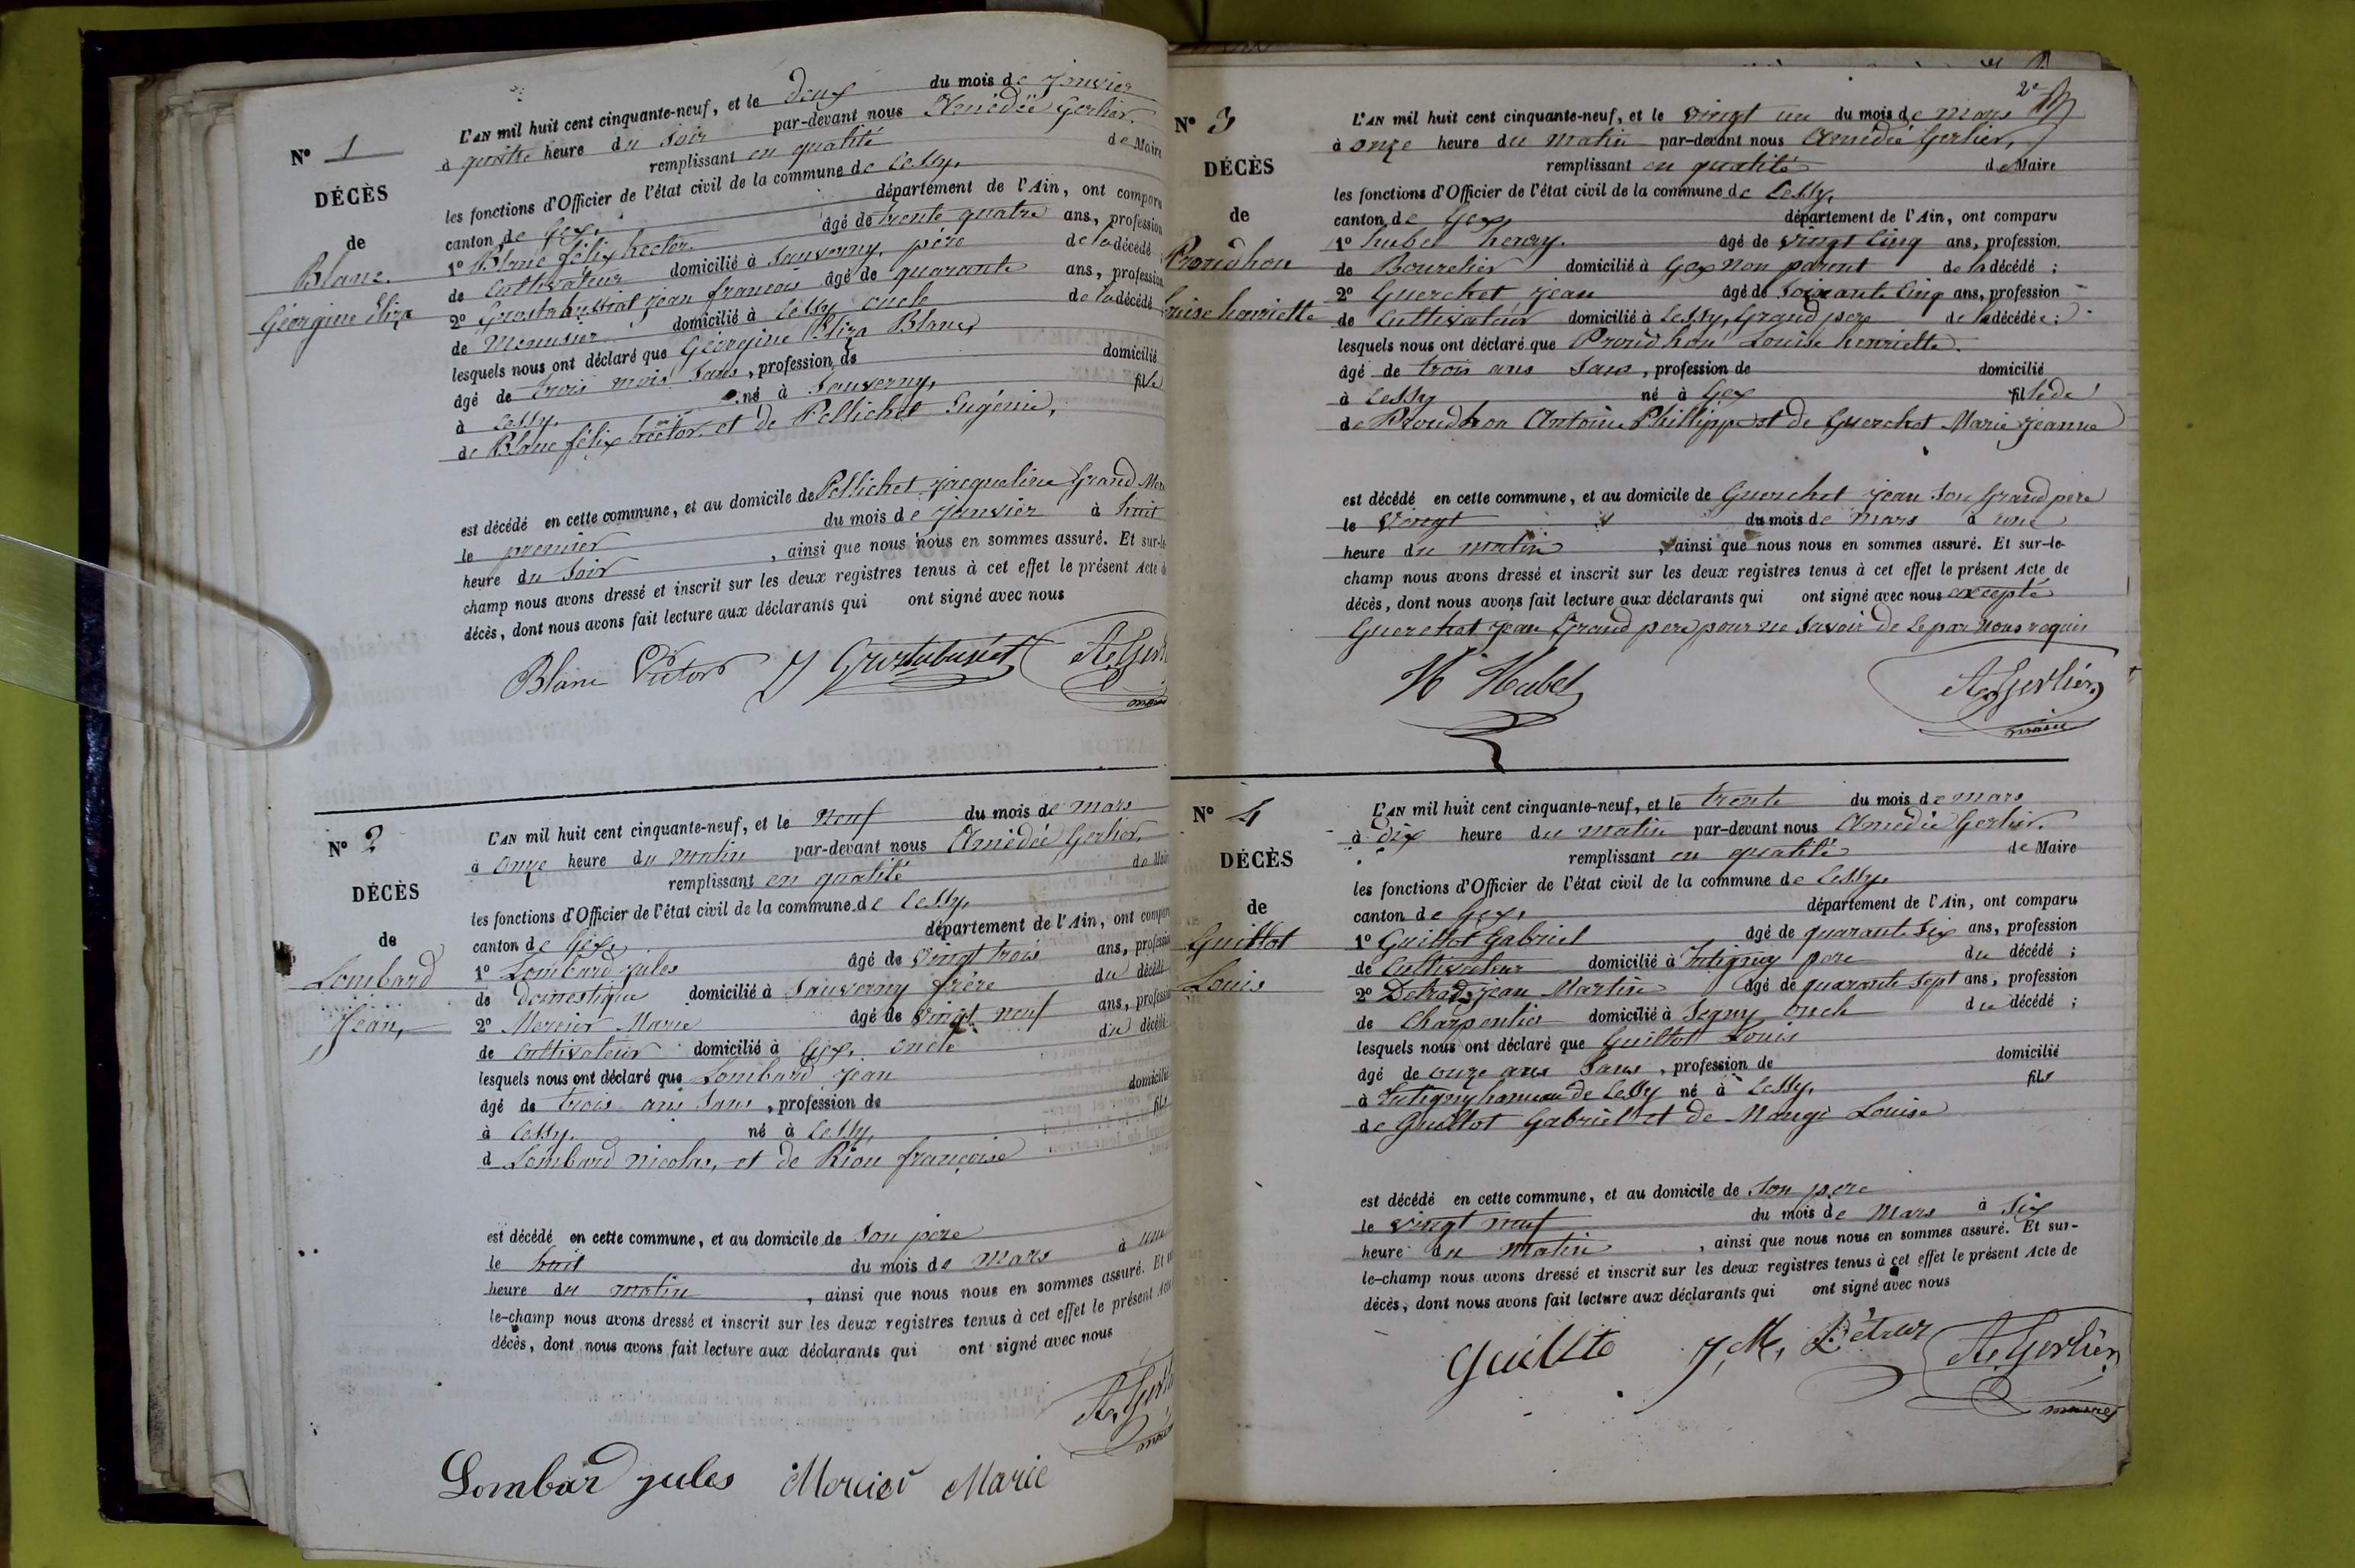 N° 1
DÉCÈS
de
Blanc
Géorgine Eliza
L'AN mil huit cent cinquante-neuf, et le deux du mois de janvier
à quatre heure du soir par-devant nous Amédée Gerlier.
remplissant en qualité de Maire
les fonctions d'Officier de l'état civil de la commune de Cessy.
canton de Gex. département de l'Ain, ont comparu
1° Blanc félix hector. âgé de trente quatre ans, profession
de Cultivateur domicilié à Sauverny, père de la décédé
2° jean francois âgé de quarante ans, profession
de Menusier domicilié à Cessy oncle de la décédé
lesquels nous ont déclaré que Géorgine Eliza Blanc
âgé de trois mois Sans, profession de domicilié
à Cessy. né à Sauverny, fille
de Blanc félix hector. et de Pellichet Eugénie,
est décédé en cette commune, et au domicile de Pellichet jacqueline Grand Mere
le premier du mois de janvier à huit
heure du Soir, ainsi que nous nous en sommes assuré. Et sur-le-
champ nous avons dressé et inscrit sur les deux registres tenus à cet effet le présent Acte de
décès, dont nous avons fait lecture aux déclarants qui ont signé avec nous
Blanc Victor
N° 2
DÉCÈS
de
Lombard
Jean,
L'AN mil huit cent cinquante-neuf, et le neuf du mois de mars
à onze heure du matin par-devant nous Amédée Gerlier,
remplissant en qualité de Maire
les fonctions d'Officier de l'état civil de la commune de Cessy,
canton de Gex, département de l'Ain, ont comparu
1° Lombard jules âgé de vingt trois ans, profession
de domestique domicilié à Sauverny frère du décédé
2° Mercier Marie âgé de vingt neuf ans, profession
de Cultivateur domicilié à Gex, oncle du décédé
lesquels nous ont déclaré que Lombard jean
âgé de trois ans Sans, profession de domicilié
à Cessy. né à Cessy, fils
d Lombard nicolas, et de Riou françoise
est décédé en cette commune, et au domicile de Son père
le huit du mois de mars à une
heure du matin, ainsi que nous nous en sommes assuré. Et sur-
le-champ nous avons dressé et inscrit sur les deux registres tenus à cet effet le présent Acte
décès, dont nous avons fait lecture aux déclarants qui ont signé avec nous
Lombard jules Mercier Marie
2e
N° 3
DÉCÈS
de
Proudhon
Louise henriette
L'AN mil huit cent cinquante-neuf, et le vingt un du mois de mars
à onze heure du matin par-devant nous Amédée Gerlier,
remplissant en qualité de Maire
les fonctions d'Officier de l'état civil de la commune de Cessy,
canton de Gex, département de l'Ain, ont comparu
1° hubel henry. âgé de vingt cinq ans, profession
de Bourelier domicilié à Gex non parent de la décédé ;
2° Guerchet jean âgé de soixante cinq ans, profession
de Cultivateur domicilié à Cessy, Grand pere de la décédée ;
lesquels nous ont déclaré que Proudhon Louise henriette.
âgé de trois ans Sans, profession de domicilié
à Cessy né à Gex fille de
de Proudhon Antoine Phillippe et de Guerchet Marie jeanne
est décédé en cette commune, et au domicile de Guerchet jean Son Grand pere
le vingt du mois de mars à une
heure du matin, ainsi que nous nous en sommes assuré. Et sur-le-
champ nous avons dressé et inscrit sur les deux registres tenus à cet effet le présent Acte de
décès, dont nous avons fait lecture aux déclarants qui ont signé avec nous excepté
Guerchet jean Grand pere pour ne Savoir de Ce par nous requis
H Hubel A. Gerlier
maire
N° 4
DÉCÈS
de
Guillot
Louis
L'AN mil huit cent cinquante-neuf, et le trente du mois de mars
à dix heure du matin par-devant nous Amédée Gerlier.
remplissant en qualité de Maire
les fonctions d'Officier de l'état civil de la commune de Cessy,
canton de Gex, département de l'Ain, ont comparu
1° Guillot Gabriel âgé de quarante Six ans, profession
de Cultivateur domicilié à Tutigny pere du décédé ;
2° jean Martin âgé de quarante sept ans, profession
de Charpentier domicilié à Segny oncle du décédé ;
lesquels nous ont déclaré que Guillot Louis
âgé de onze ans Sans, profession de domicilié
à Tutigny hameau de Cessy né à Cessy, fils
de Guillot Gabriel et de Mangé Louise
est décédé en cette commune, et au domicile de Son pere
le vingt neuf du mois de Mars à Six
heure du matin, ainsi que nous nous en sommes assuré. Et sur-
le-champ nous avons dressé et inscrit sur les deux registres tenus à cet effet le présent Acte de
décès, dont nous avons fait lecture aux déclarants qui ont signé avec nous
J, M, A. Gerlier